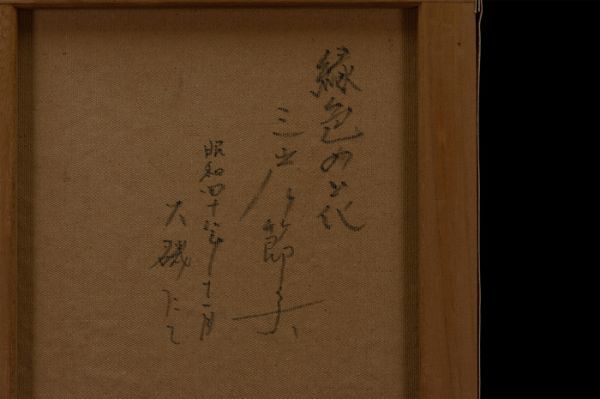 緑色の花
三岸節子
昭和四十年十一月
大磯にて